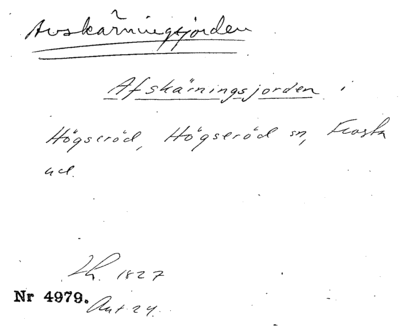 Avskärningsjorden
Afskärningsjorden i
Högseröd, Högseröd sn, Frosta
hd.
Lh. 1827
Nr 4979.
Ant. 24.